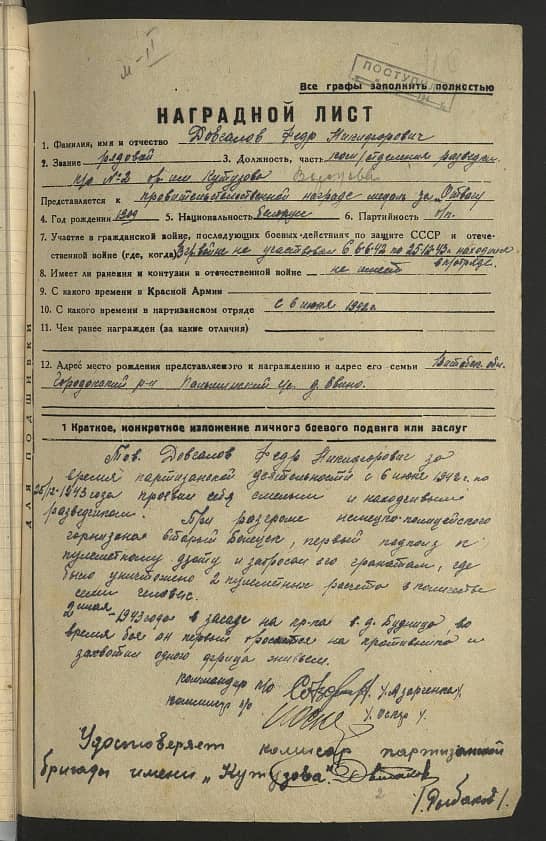 м-II
ПОСТУПИЛ
Все графы заполнять полностью
НАГРАДНОЙ ЛИСТ
1. Фамилия, имя и отчество Довгалов Федр Никифорович
2. Звание рядовой 3. Должность, часть отделения разведки
п/о № 2 бр. им Кутузова
Представляется к правительственной награде медаль за "Отвагу
4. Год рождения 1909 5. Национальность белорус 6. Партийность б/п.
7. Участие в гражданской войне, последующих боевых действиях по защите СССР и отече-
ственной войне (где, когда) не участвовал 6.6.42 по 25.12.43. находился
в п/отряде.
8. Имеет ли ранения и контузии в отечественной войне не имеет
9. С какого времени в Красной Армии
10. С какого времени в партизанском отряде с 6 июня 1942г.
11. Чем ранее награжден (за какие отличия)
12. Адрес место рождения представляемого к награждению и адрес его семьи Витебск. обл.
р-н с/с. д.
ДЛЯ ПОДШИВКИ
1 Краткое, конкретное изложение личного боевого подвига или заслуг
Тов. Довгалов Федр Никифорович за
время партизанской деятельности с 6 июня 1942 г. по
25/12-1943 года проявил себя смелым и находчивым
разведчиком. При разгроме немецко-полицейского
горнизона в Старый Болецк, первый подполз к
пулеметному дзоту и забросал его гранатами, где
было уничтожено 2 пулеметных расчета в количестве
семи человек.
2 мая-1943 года в засаде на пр-ка в. д. Будница во
время боя он первый бросается на противника и
захватил одного фрица живьем.
командир п/о /Азарченко/
комиссар п/о
Удостоверяет комисар партизанской
бригады имени „Кутузова"
/Рыбаков/.
2